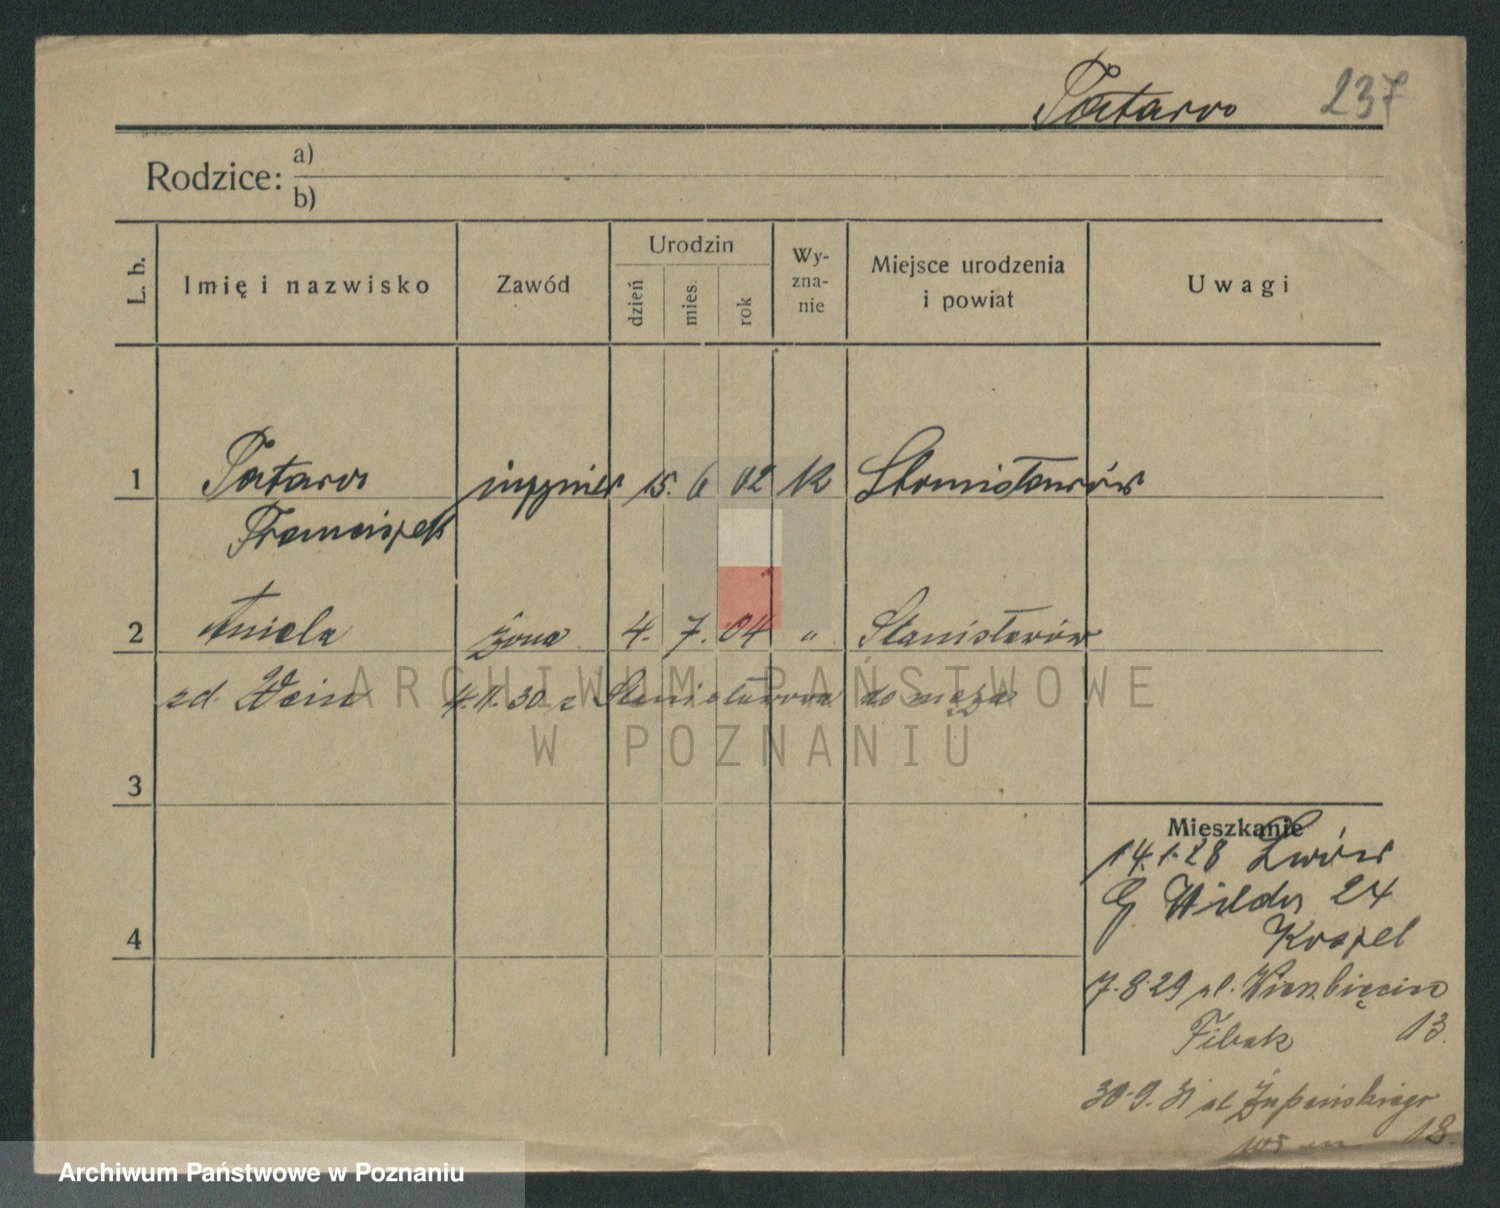 Tatara 237
Rodzice: a)
b)
L. b. Imię i nazwisko Zawód Urodzin dzień mies. rok Wy-zna-nie Miejsce urodzenia i powiat Uwagi
1 Tatara inżynier 15. 6 02 K Stanisławów
Franciszek
2 Aniela żona 4. 7. 04 " Stanisławów
zd. 4.11.30 z Stanisławowa do męża
3
Mieszkanie
14.1.28 Lwów
G Wilda 24
4
7.8.29 ul. Wierzbięcice
Fibak 13.
30.9.31 ul Żupańskiego
18
ARCHIWUM PAŃSTWOWE
W POZNANIU
Archiwum Państwowe w Poznaniu